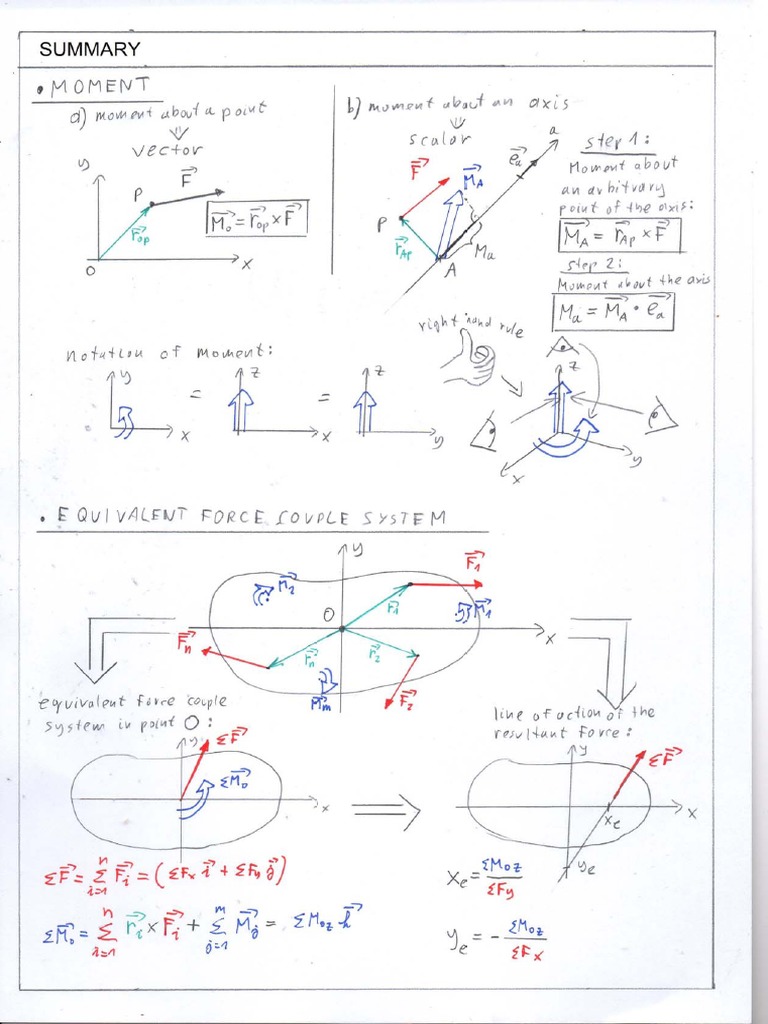 SUMMARY
• MOMENT
a) moment about a point
⇓
vector
y
P
F⃗
r⃗op
M⃗o = r⃗op x F⃗
O
x
b) moment about an axis
⇓
scalar
a
e⃗a
F⃗
M⃗A
P
r⃗Ap
Ma
A
step 1:
Moment about
an arbitrary
point of the axis:
M⃗A = r⃗Ap x F⃗
step 2:
Moment about the axis
Ma = M⃗A • e⃗a
notation of moment:
y
x
=
z
x
=
z
y
right hand rule
z
x
y
• EQUIVALENT FORCE COUPLE SYSTEM
y
F⃗1
M⃗2
r⃗1
M⃗1
O
x
F⃗n
r⃗n
r⃗2
M⃗m
F⃗2
equivalent force couple
system in point O:
y
ΣF⃗
ΣM⃗o
x
line of action of the
resultant force:
y
ΣF⃗
xe
x
ye
ΣF⃗ = Σ i=1 n F⃗i = (ΣFx i⃗ + ΣFy j⃗)
ΣM⃗o = Σ i=1 n r⃗i x F⃗i + Σ j=1 m M⃗j = ΣMoz k⃗
xe = ΣMoz / ΣFy
ye = - ΣMoz / ΣFx